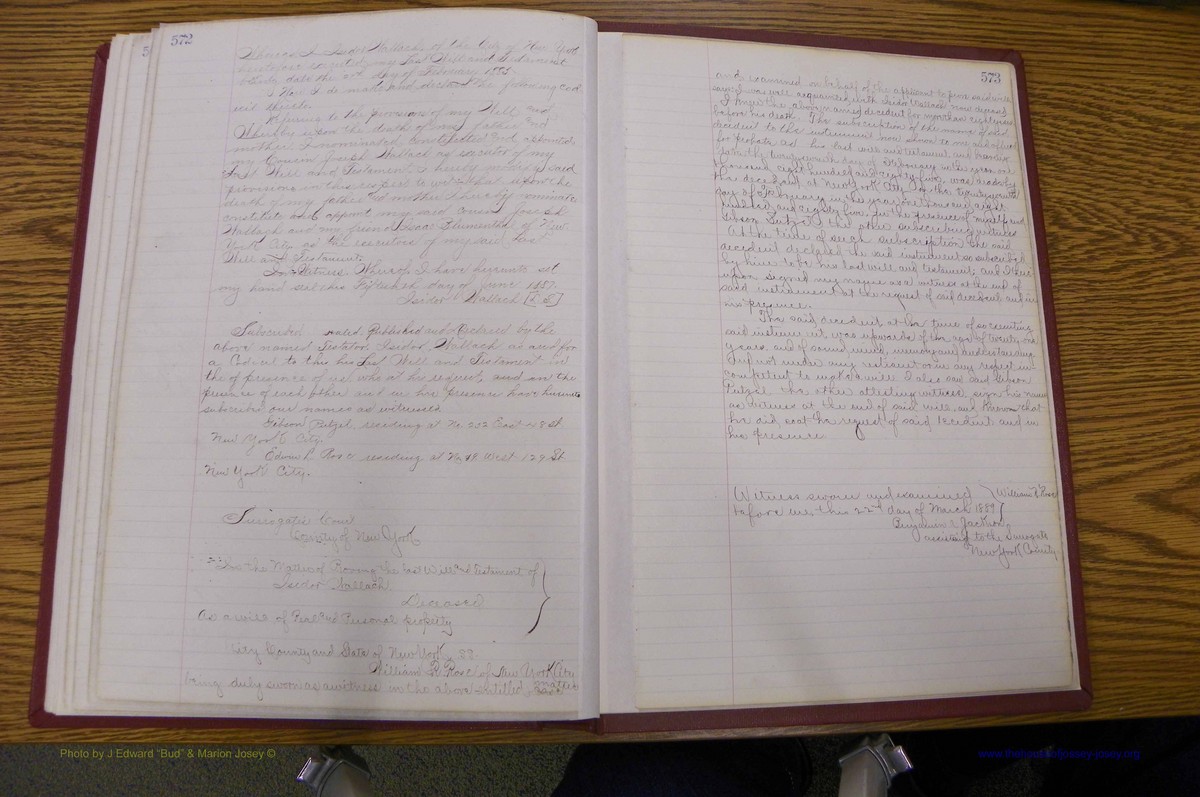 572
Whereas I Isidor Wallach of the City of New York
executed my Last Will and Testament
date the day of February 1885
Now I do make and declare the following cod
icil thereto.
Referring to the provisions of my Will and
Whereby upon the death of my father and
mother I nominated, constituted and appointed
my Cousin Joseph Wallach as executor of my
Last Will and Testament I hereby modify said
provisions in this respect to wit that upon the
death of my father and mother I hereby nominate
constitute and appoint my said cousin Joseph
Wallach and my friend Isaac Blumenthal of New
York City as the executors of my said Last
Will and Testament.
In Witness Whereof I have hereunto set
my hand seal this Fifteenth day of June 1887.
Isidor Wallach [L.S.]
Subscribed sealed Published and Declared by the
above named Testator Isidor Wallach as and for
a Codicil to this his Last Will and Testament in
the presence of us who at his request, and in the
presence of each other and in his presence have hereunto
subscribed our names as witnesses
Gibson Putzel, residing at No. 202 East 48 St
New York City.
Edwin L. Rose residing at No West 129 St
New York City.
Surrogate's Court
County of New York
In the Matter of Proving the Last Will and Testament of
Isidor Wallach
Deceased
As a will of Real and Personal property
City County and State of New York, SS.
William R. Rose of New York City
being duly sworn as a witness in the above entitled matter
573
and examined on behalf of the applicant to prove said will
says I was well acquainted with Isidor Wallach now deceased
I knew the above named decedent for more than eight years
before his death. The subscription of the name of said
decedent to the instrument now shown to me and offered
for probate as his last will and testament and bearing
date the twenty seventh day of February in the year one
thousand eight hundred and eighty five, was made by
the decedent at New York City on the twenty seventh
day of February in the year one thousand eight
hundred and eighty five, in the presence of myself and
Gibson Putzel the other subscribing witness
At the time of such subscription the said
decedent declared the said instrument so subscribed
by him to be his last will and testament; and I there
upon signed my name as a witness at the end of
said instrument at the request of said decedent and in
his presence.
The said decedent at the time of so executing
said instrument, was upwards of the age of twenty one
years and of sound mind, memory and understanding
and not under any restraint or in any respect in
competent to make a will I also saw said Gibson
Putzel the other attesting witness sign his name
as witness at the end of said will, and know that
he did so at the request of said decedent and in
his presence
Witness sworn and examined } William R. Rose
before me, this 22nd day of March 1889 }
Benjamin Jackson
assisting to the Surrogate
New York County
Photo by J Edward "Bud" & Marion Josey ©